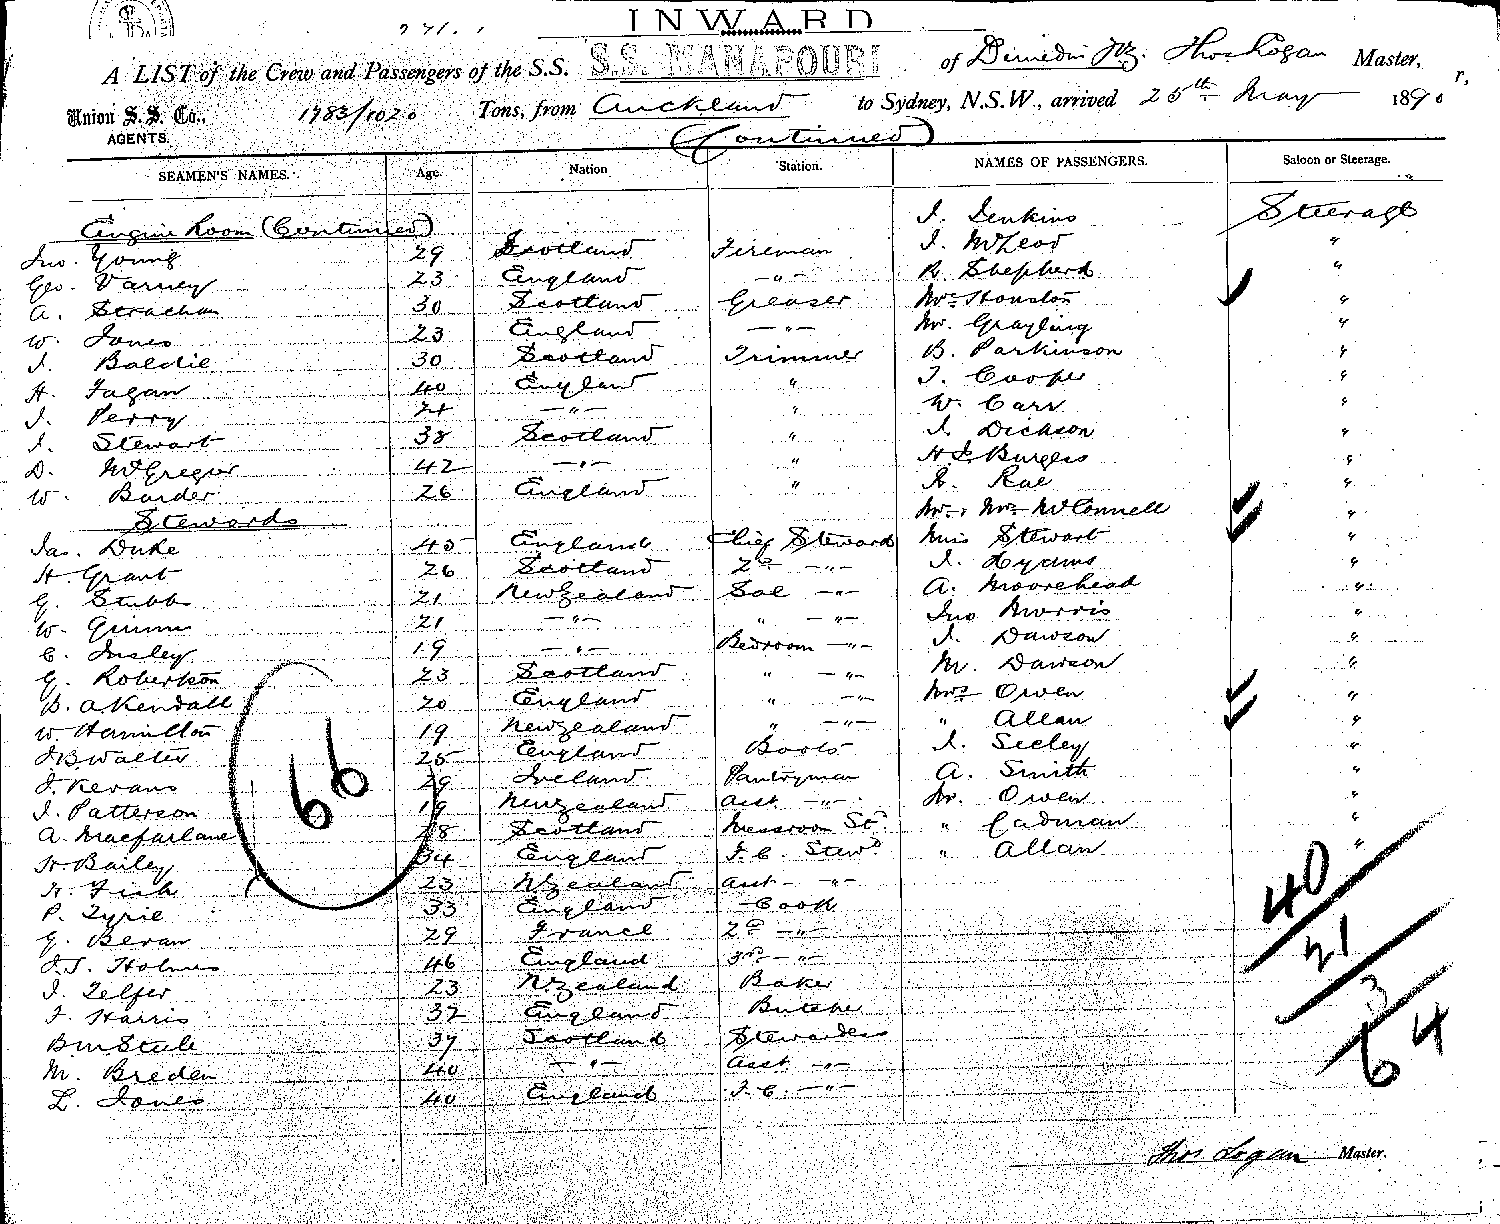 INWARD
A LIST of the Crew and Passengers of the S.S. S.S. MANAPOURI of Dunedin N.Z. Thos Logan Master,
Union S. S. Co., 1783/1020 Tons, from Auckland to Sydney, N.S.W., arrived 25th May 1890
AGENTS.
(Continued)
SEAMEN'S NAMES. Age. Nation Station. NAMES OF PASSENGERS. Saloon or Steerage.
J. Jenkins Steerage
Engine Room (Continued) J. McLeod "
Jno. Young 29 Scotland Fireman R. Shepherd "
Geo. Varney 23 England —"— Mrs Houston "
A. Strachan 30 Scotland Greaser Mr. Grayling "
W. Jones 23 England —"— B. Parkinson "
J. Baldie 30 Scotland Trimmer T. Cooper "
H. Fagan 40 England " W. Carr "
J. Perry 24 —"— " J. Dickson "
J. Stewart 38 Scotland " H J Burgess "
D. McGregor 42 —"— " R. Rae "
W. Barder 26 England " Mr. & Mrs McConnell "
Stewards
Jas. Duke 45 England Chief Steward Miss Stewart "
H. Grant 26 Scotland 2nd —"— J. Lyams "
G. Stubbs 21 New Zealand Sal —"— A. Moorehead "
W. 21 —"— " —"— Jno Morris "
C. Insley 19 —"— Bedroom —"— J. Dawson "
G. Robertson 23 Scotland " —"— M. Dawson "
B. A Kendall 20 England " —"— Mrs Owen "
W. Hamilton 19 New Zealand " —"— " Allan "
J B Walter 25 England Boots J. Seeley "
J. Kevans 29 Ireland Pantryman A. Smith "
J. Patterson 19 New Zealand Asst —"— Mr. Owen "
A. Macfarlane 28 Scotland Messroom Std " Cadman "
H. Bailey 34 England F. C. Stewd " Allan "
H. Fish 23 N Zealand Asst —"—
P. Tyrie 33 England Cook
G. Beran 29 France 2nd —"—
J. T. Holmes 46 England 3rd —"—
J. Telfer 23 N Zealand Baker
F. Harris 32 England Butcher
B McSteele 37 Scotland Stewardess
M. Breden 40 —"— Asst —"—
L. Jones 40 England F. C. —"—
66
40
21
3
64
Thos Logan Master.